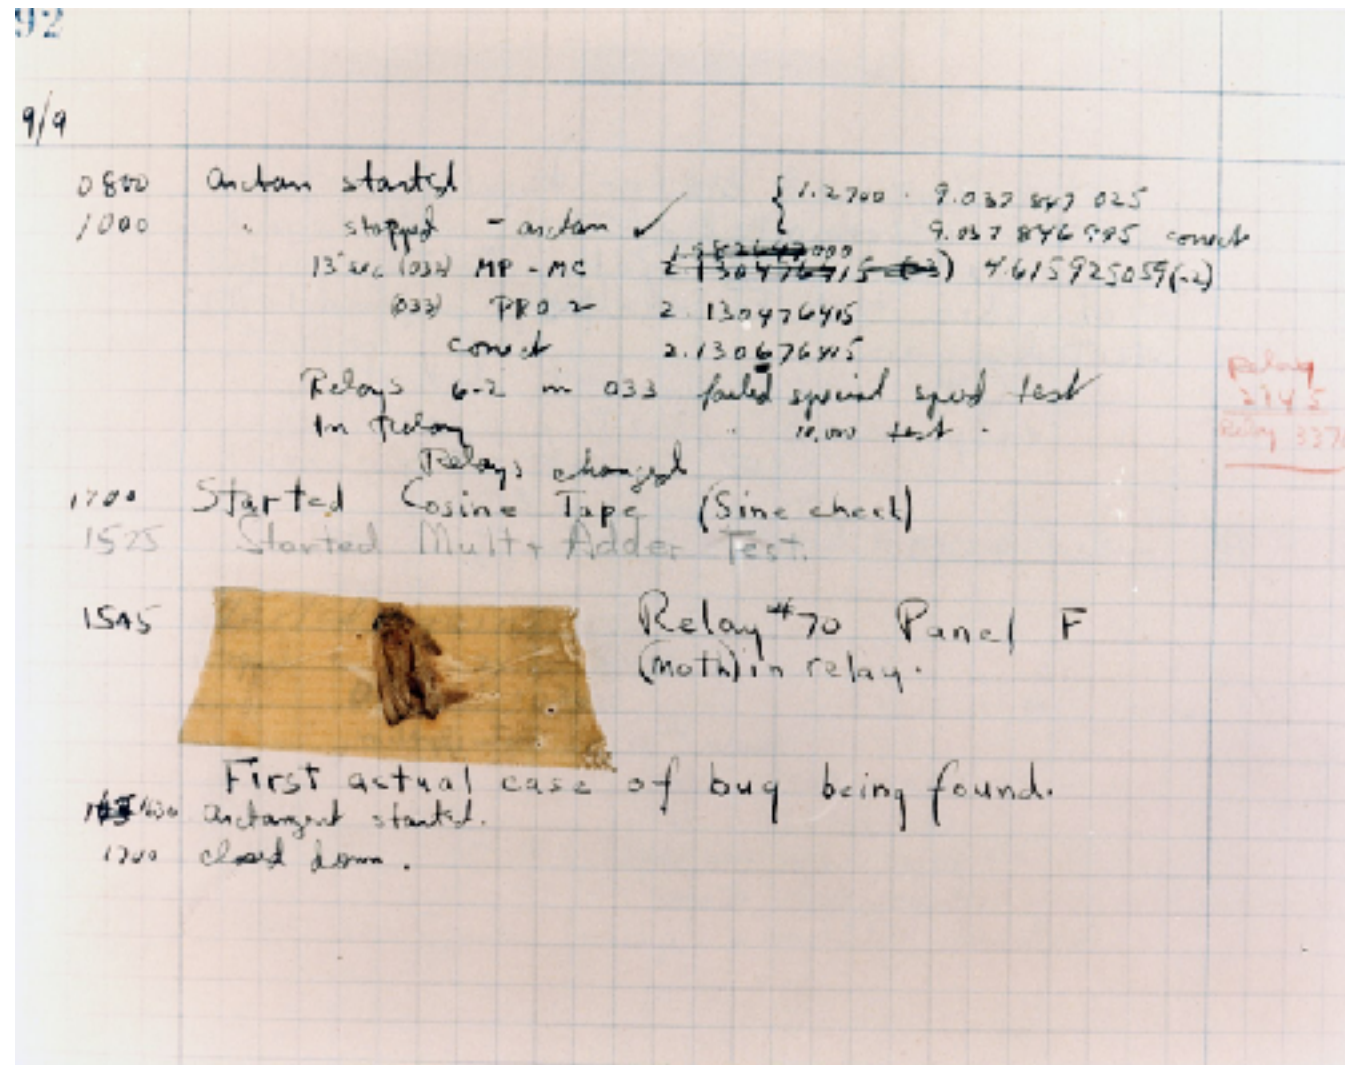 92
9/9
0800 arctan started { 1.2700 . 9.037 847 025
1000 " stopped - arctan ✓ 9.037 846 995 correct
13" sec (033) MP - MC 1.982647000 2.130476415 (-3) 4.615925059(-2)
(033) PRO 2 2.130476415
correct 2.130676415
Relays 6-2 in 033 failed special speed test
In Relay " 10,000 test .
Relays changed
Relay
2145
Relay 3370
1700 Started Cosine Tape (Sine check)
1525 Started Mult+ Adder Test.
1545 Relay #70 Panel F
(moth) in relay.
First actual case of bug being found.
1630 arctangent started.
1700 closed down .